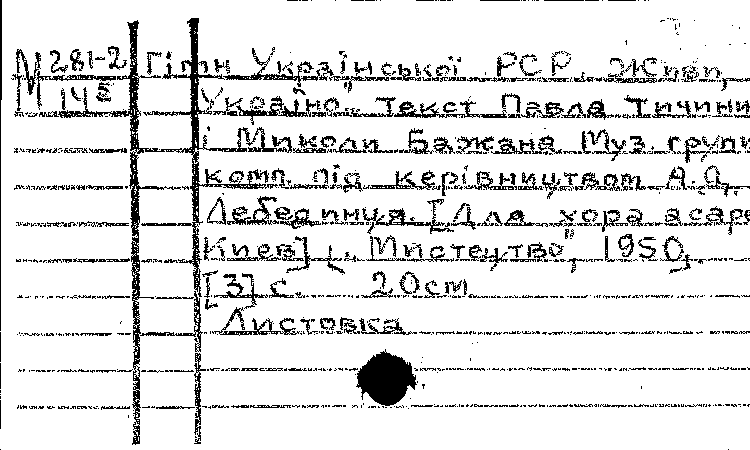 М 281-2 Гімн Української РСР. „Живи,
145 Україно". Текст Павла Тичини
і Миколи Бажана Муз. групи
комп. під керівництвом А.Д.
Лебединця. [Для хора acape
Киев], „Мистецтво", 1950.
[3] с. 20 см
Листовка